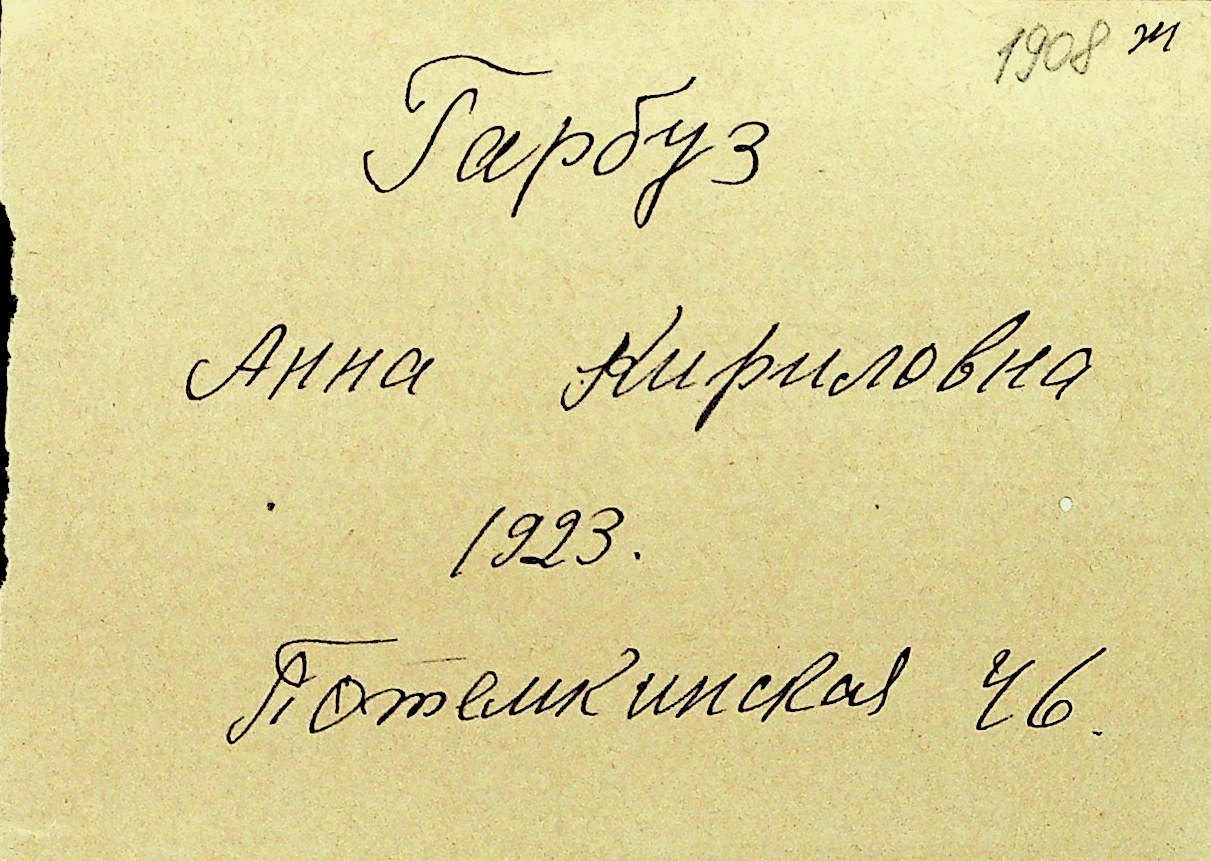 1908 ж
Гарбуз
Анна Кириловна
1923.
Потемкинская 46.